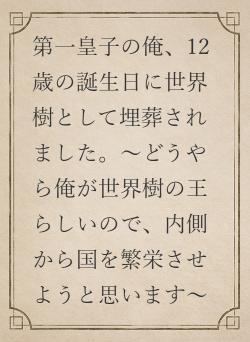 第一皇子の俺、12
歳の誕生日に世界
樹として埋葬され
ました。～どうや
ら俺が世界樹の王
らしいので、内側
から国を繁栄させ
ようと思います～